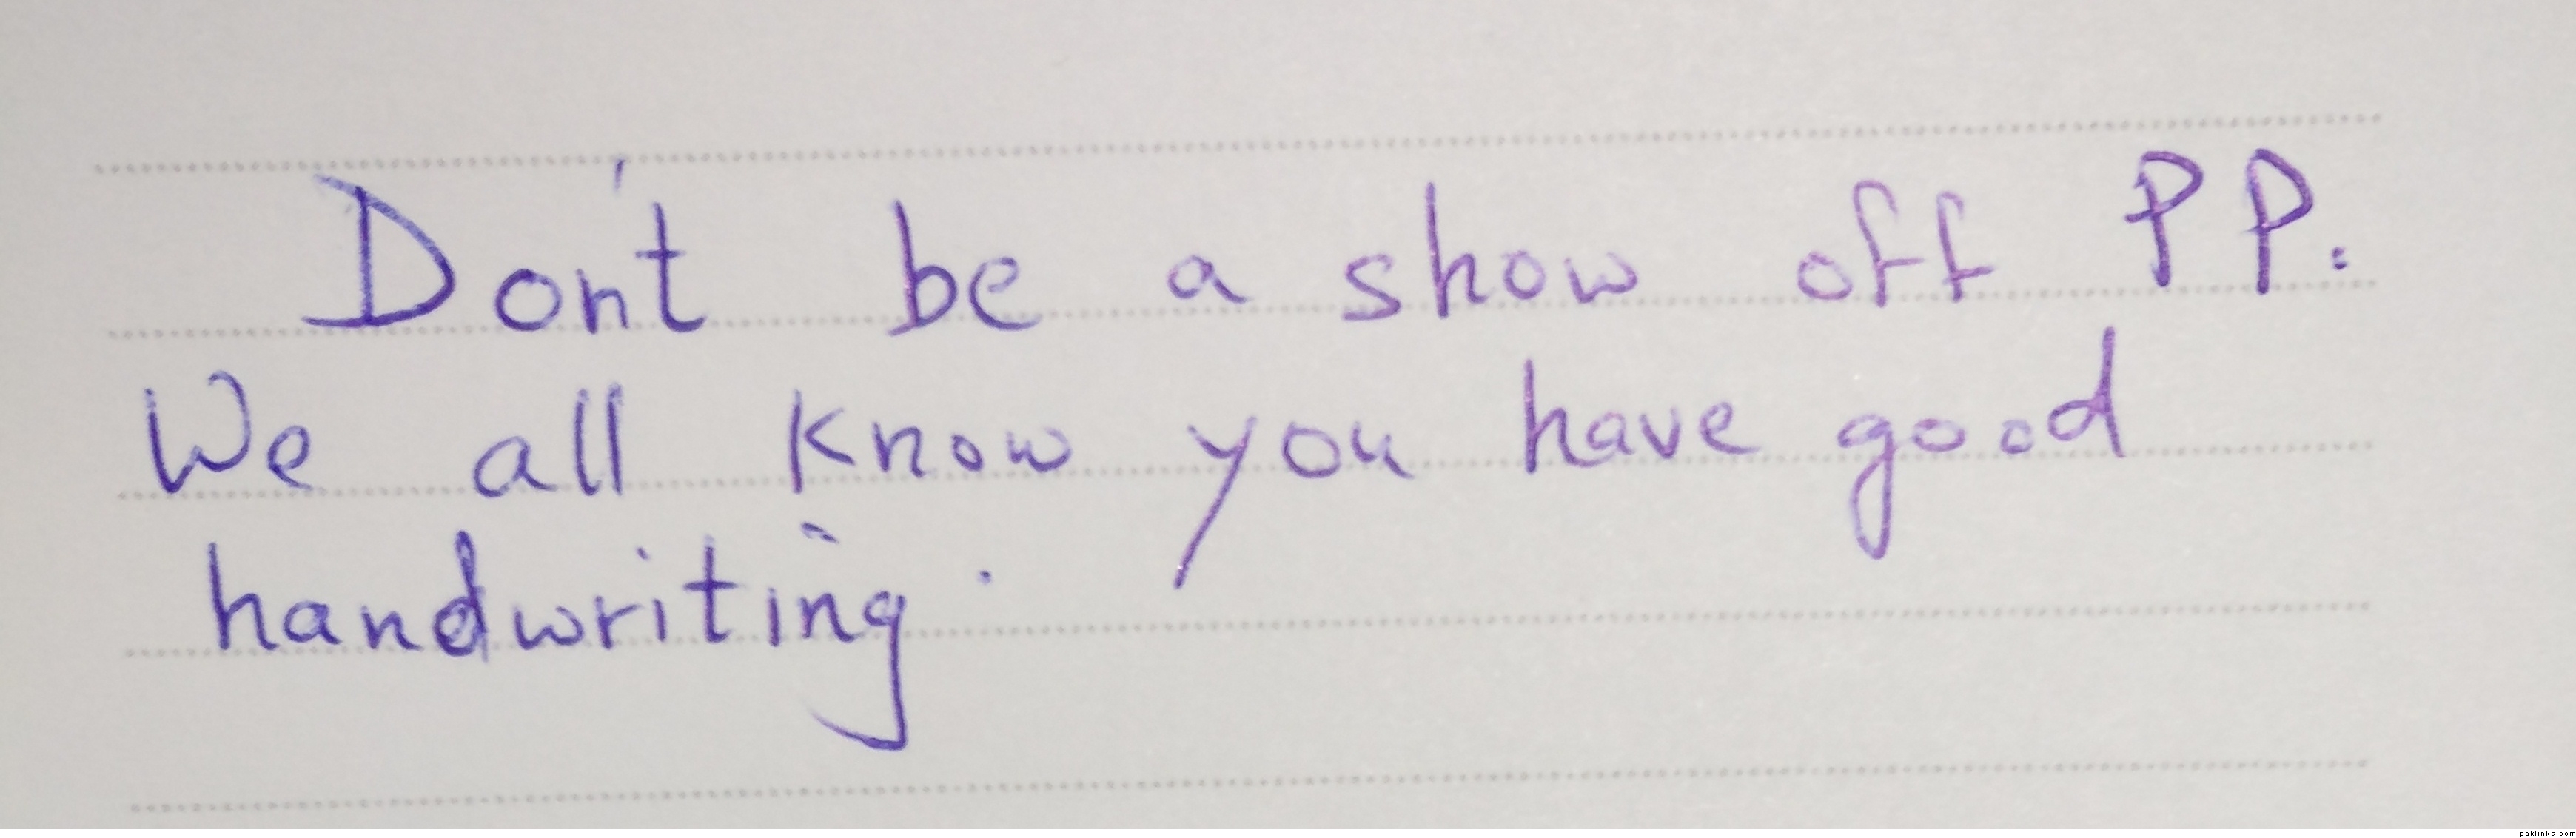 Don't be a show off PP.
We all know you have good
handwriting.
paklinks.com